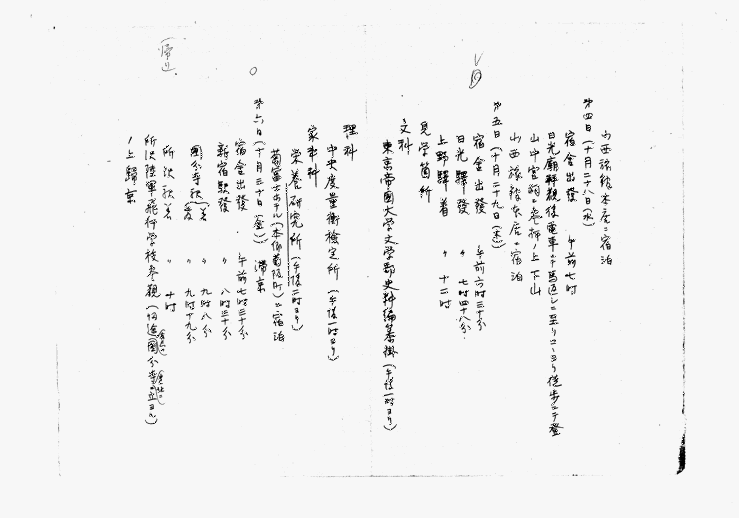 山西旅館本店ニ宿泊
第四日(十月二十八日(水))
宿舎出發 午前七時
日光廟拝観後電車ニテ馬返シニ至リココヨリ徒歩ニテ登
山中宮祠ニ参拝ノ上下山
山西旅館本店ニ宿泊
第五日(十月二十九日(木))
宿舎出發 午前六時三十分
日光驛發 〃 七時四十八分
上野驛着 〃 十二時
見学箇所
文科
東京帝国大学文学部史料編纂掛(午後一時ヨリ)
理科
中央度量衡検定所(午後一時ヨリ)
家事科
栄養研究所(午後二時ヨリ)
菊富士ホテル(本郷菊坂町)ニ宿泊
第六日(十月三十日(金)) 滞京
宿舎出發 午前七時三十分
新宿駅發 〃 八時三十分
國分寺駅(着 〃 九時八分
發 〃 九時十九分
所沢駅着 〃 十時
所沢陸軍飛行学校参観(帰途國分寺ニ立ヨル)
ノ上歸京
(帰リ)